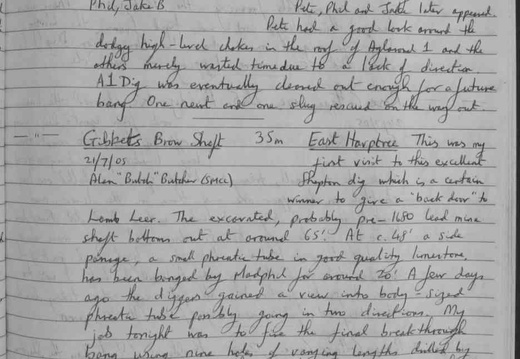 Phil, Jake B Pete, Phil and Jake later appeared.
Pete had a good look around the
dodgy high-level chokes in the roof of Aglarond 1 and the
others merely wasted time due to a lack of direction.
A1 Dig was eventually cleared out enough for a future
bang. One newt and one slug rescued on the way out
— " — Gibbets Brow Shaft 35m East Harptree This was my
21/7/05 first visit to this excellent
Alan "Butch" Butcher (SMCC) Shepton dig which is a certain
winner to give a "back door" to
Lamb Leer. The excavated, probably pre-1680 lead mine
shaft bottoms out at around 65'. At c.48' a side
passage, a small phreatic tube in good quality limestone,
has been banged by Madphil for around 20'. A few days
ago the diggers gained a view into body-sized
phreatic tube possibly going in two directions. My
job tonight was to fire the final breakthrough
bang using nine holes of varying lengths drilled by